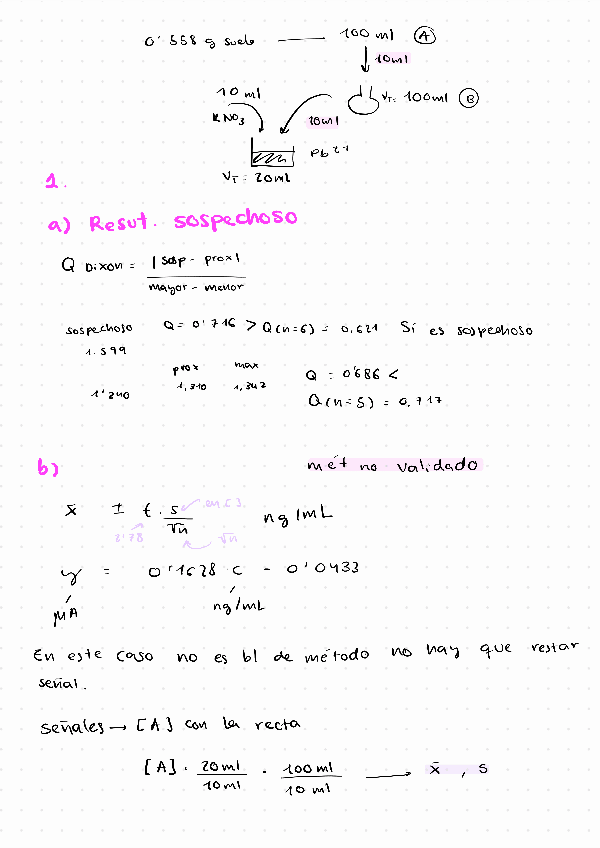 0'558 g suelo —— 100 ml (A)
10ml
10 ml
KNO3
10ml
VT = 100ml (B)
Pb2+
VT = 20ml
1.
a) Resut. sospechoso
Q Dixon = |sosp - prox|
mayor - menor
sospechoso Q = 0'716 > Q(n=6) = 0,621 Sí es sospechoso
1.599
prox max
1'240 1,310 1,342
Q = 0'686 <
Q(n=5) = 0,717
b) mét no validado
x̄ ± t · s/√n ng/mL
en [ ].
2'78 √n
y = 0'1628 C - 0'0433
μA ng/mL
En este caso no es bl de método no hay que restar
señal.
señales → [A] con la recta
[A] · 20ml/10ml · 100ml/10ml → x̄ , s